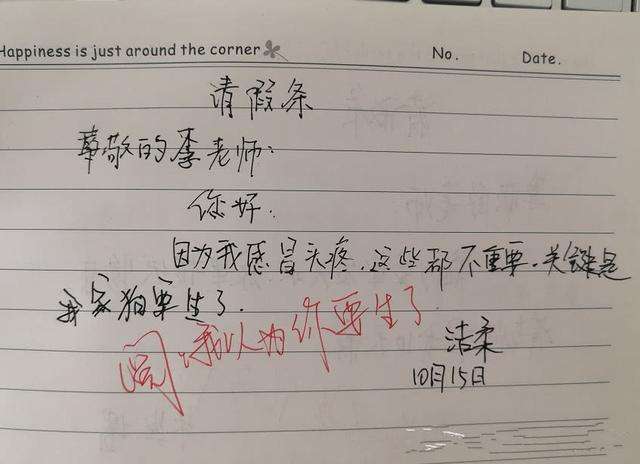 Happiness is just around the corner
No. Date.
请假条
尊敬的李老师:
你好.
因为我感冒头疼.这些都不重要.关键是
我家狗要生了.
我以为你要生了
洁柔
10月15日